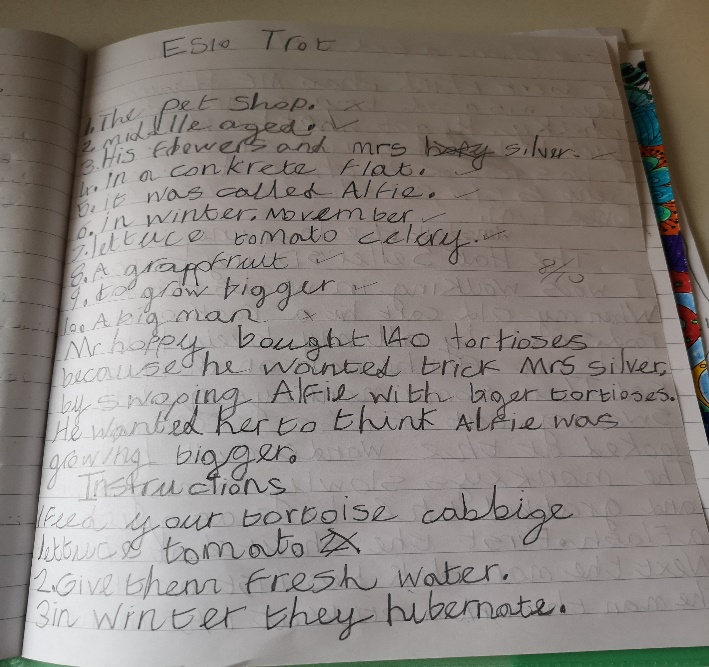 Esio Trot
1. The pet shop. x
2 middlle aged. ✓
3. His flowers and mrs hopy silver. ✓
4. In a conkrete flat. ✓
5. it was called Alfie. ✓
6. in winter. November ✓
7. lettuce tomato celery. ✓
8. A grappfruit ✓
8/10
9. to grow bigger ✓
10. A big man x
Mr hoppy bought 140 tortioses
because he wanted trick Mrs silver.
by swoping Alfie with biger tortioses.
He wanted her to think Alfie was
growing bigger.
Instructions
1 Feed your tortoise cabbige
lettuce tomato
2. Give them fresh water.
3 in winter they hibernate.